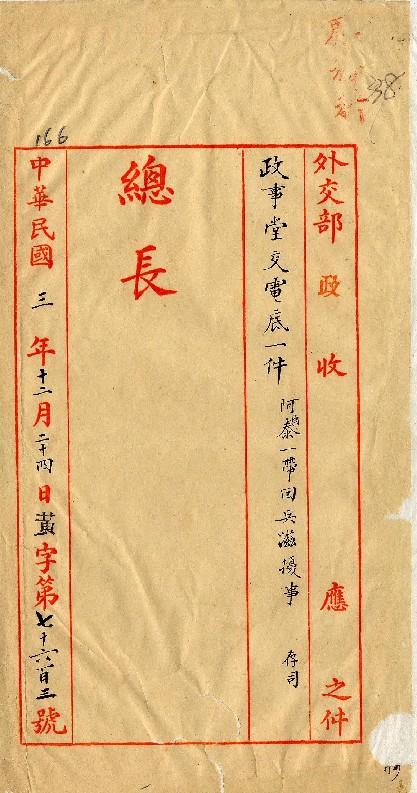 38
166
外交部政收應之件
政事堂交電底一件 阿爾泰一帶回兵滋擾事 存司
總長
中華民國三年十二月二十四日黃字第七千六百三號